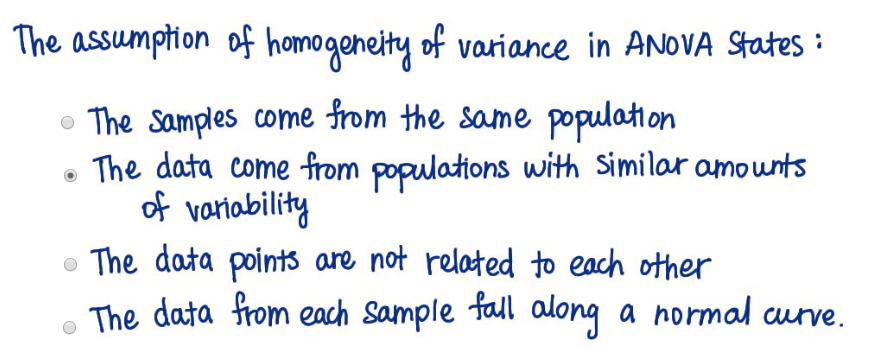 The assumption of homogeneity of variance in ANOVA States :
The Samples come from the same population
The data come from populations with Similar amounts
of variability
The data points are not related to each other
The data from each Sample fall along a normal curve.